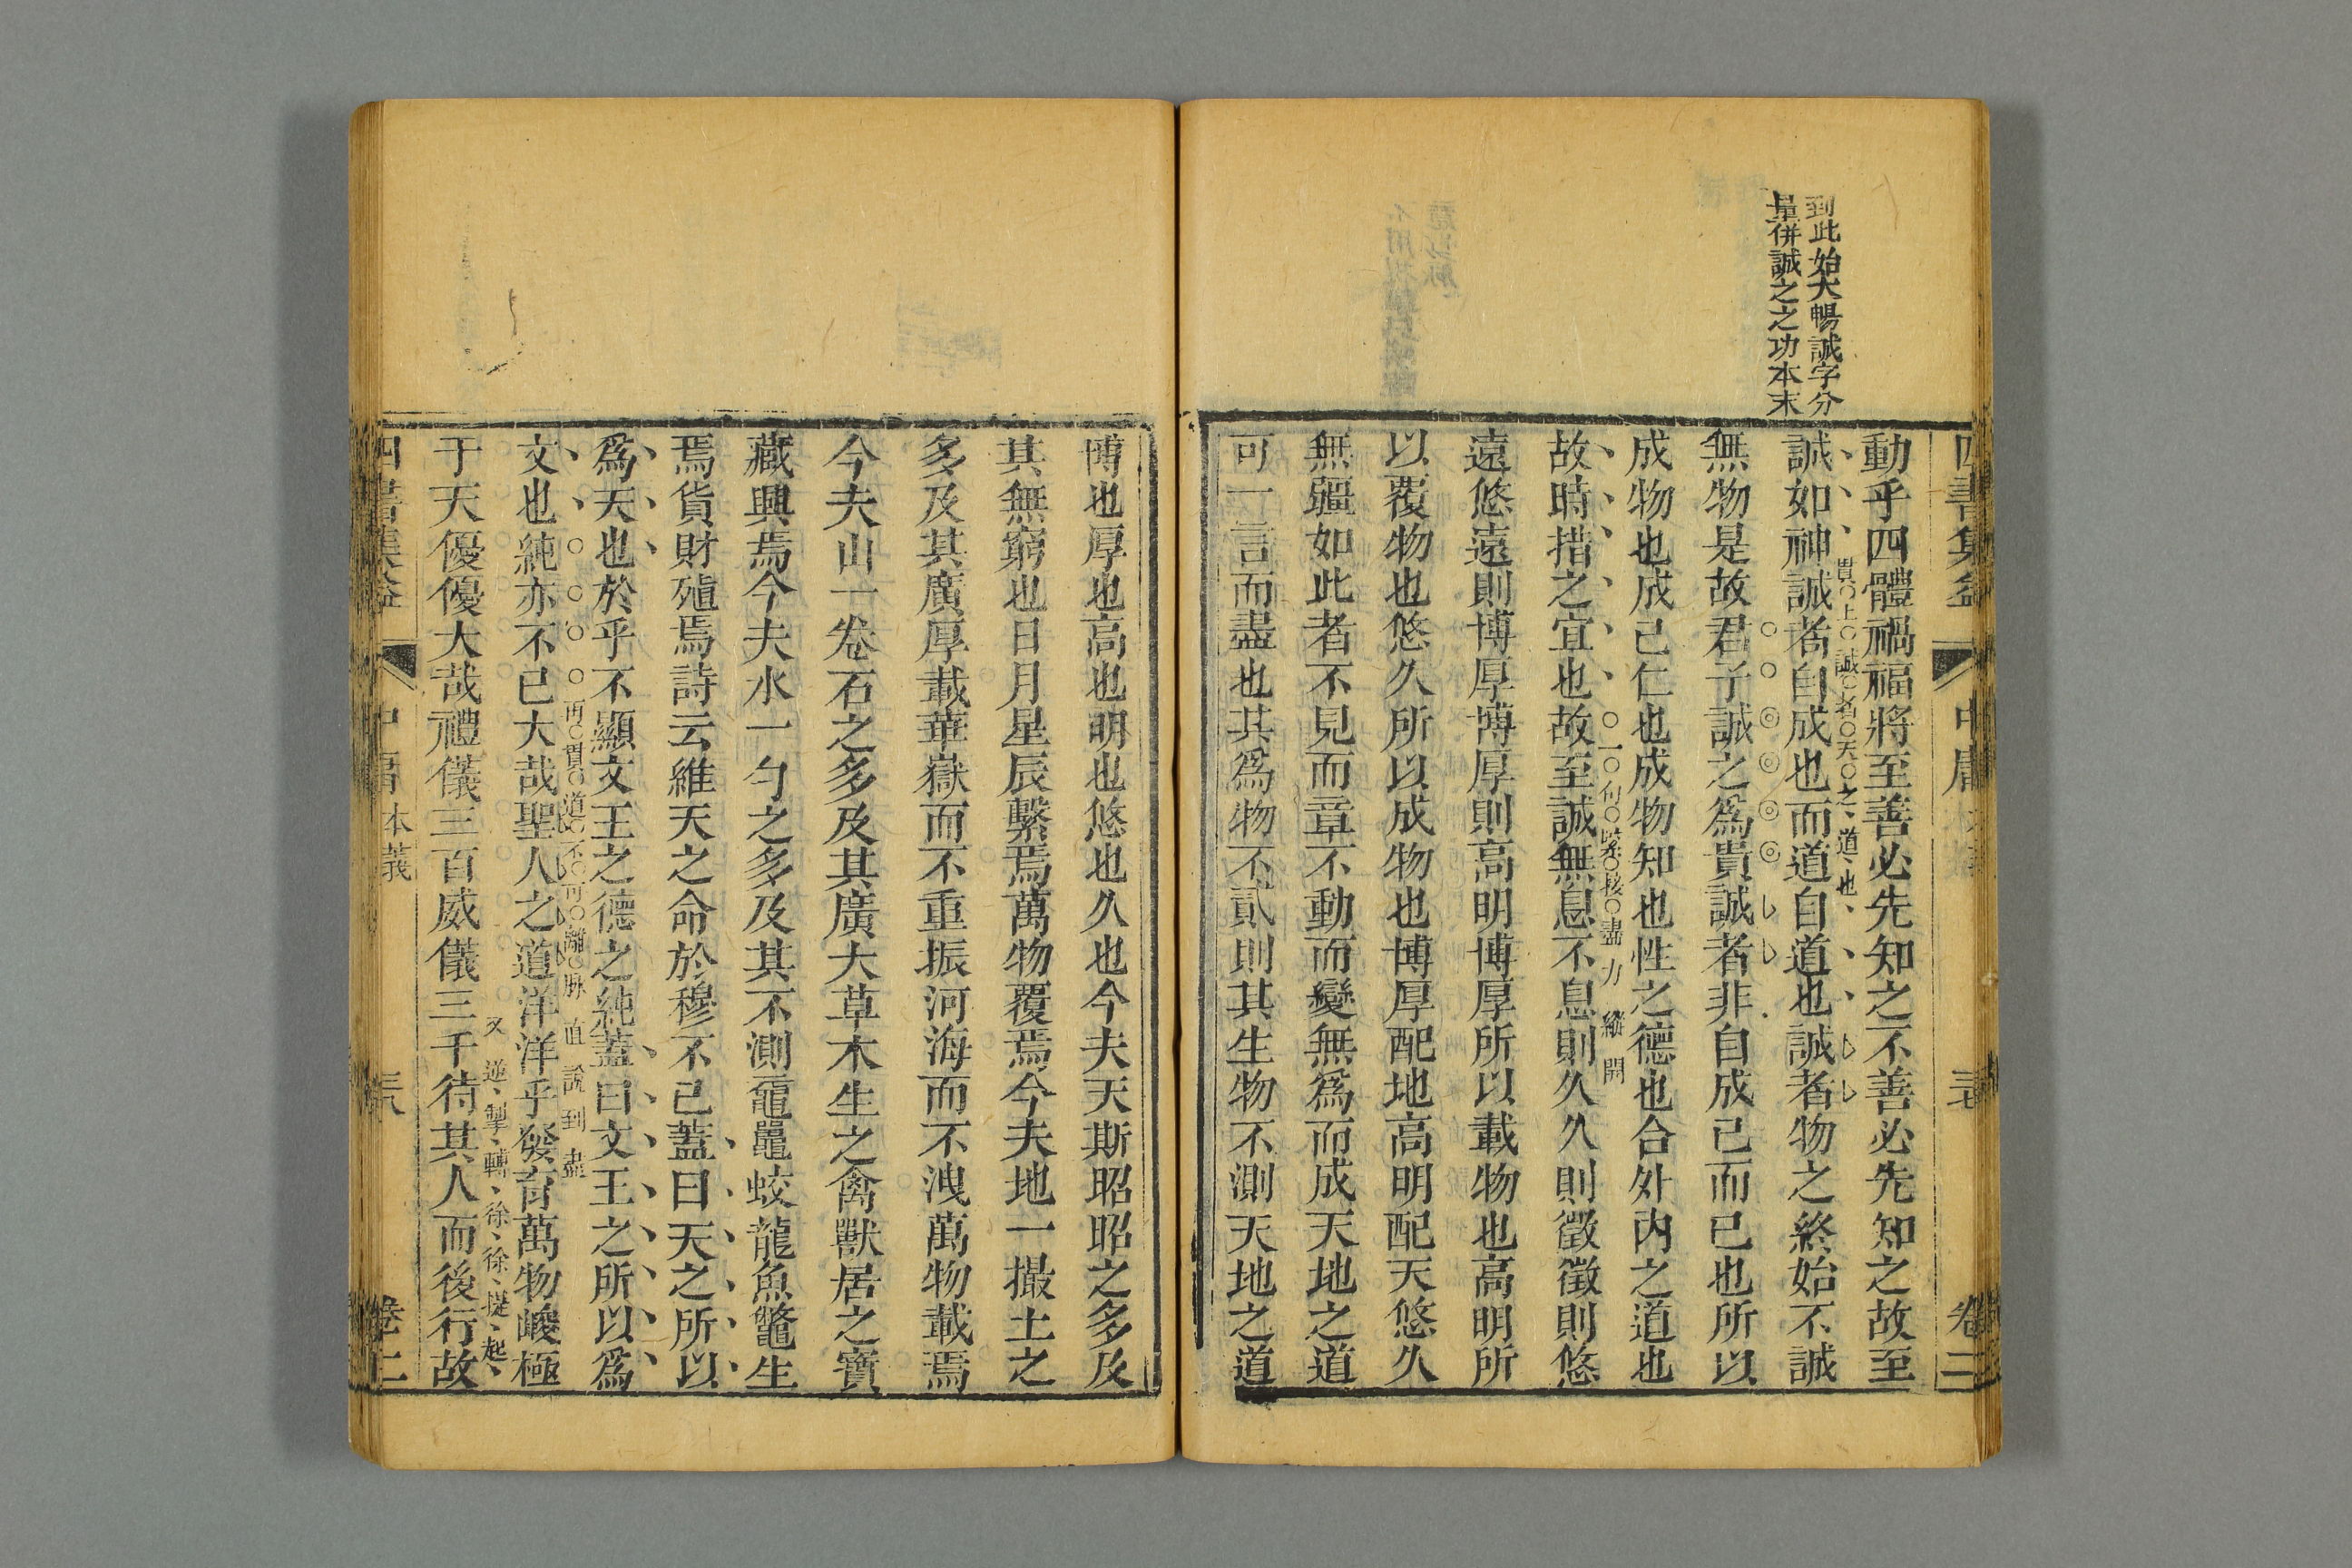 到此始大暢誠字分
量併誠之之功本末
四書集益 中庸 卷二
動乎四體禍福將至善必先知之不善必先知之故至
貫上誠者天之道也
誠如神誠者自成也而道自道也誠者物之終始不誠
無物是故君子誠之為貴誠者非自成己而已也所以
成物也成己仁也成物知也性之德也合外內之道也
一句緊接盡力縱開
故時措之宜也故至誠無息不息則久久則徵徵則悠
遠悠遠則博厚博厚則高明博厚所以載物也高明所
以覆物也悠久所以成物也博厚配地高明配天悠久
無疆如此者不見而章不動而變無為而成天地之道
可一言而盡也其為物不貳則其生物不測天地之道
博也厚也高也明也悠也久也今夫天斯昭昭之多及
其無窮也日月星辰繫焉萬物覆焉今夫地一撮土之
多及其廣厚載華嶽而不重振河海而不洩萬物載焉
今夫山一卷石之多及其廣大草木生之禽獸居之寶
藏興焉今夫水一勺之多及其不測黿鼉蛟龍魚鼈生
焉貨財殖焉詩云維天之命於穆不已蓋曰天之所以
為天也於乎不顯文王之德之純蓋曰文王之所以為
再貫道不可離脉直說到盡
文也純亦不已大哉聖人之道洋洋乎發育萬物峻極
又逆掣轉徐徐提起
于天優優大哉禮儀三百威儀三千待其人而後行故
四書集益 中庸本義 卷二